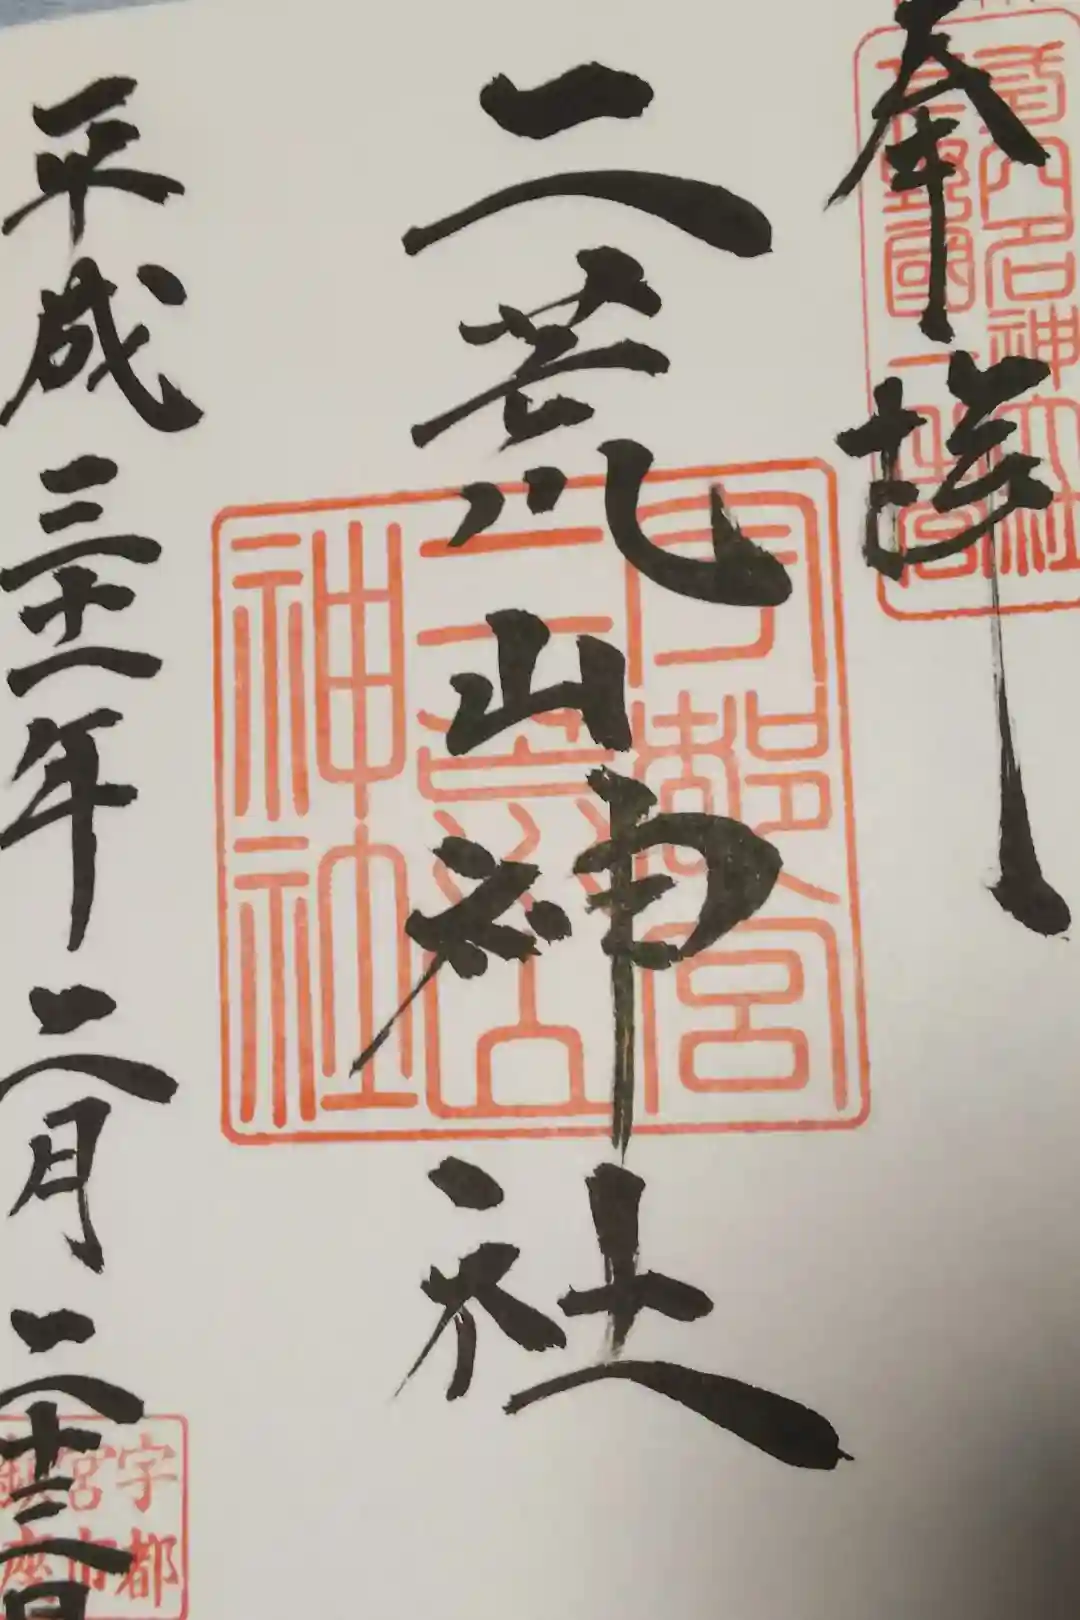 奉拝
式内名神大社
下野國一之宮
二荒山神社
宇都宮
二荒山
神社
平成三十一年二月二十三日
宇都
宮市
鎮座